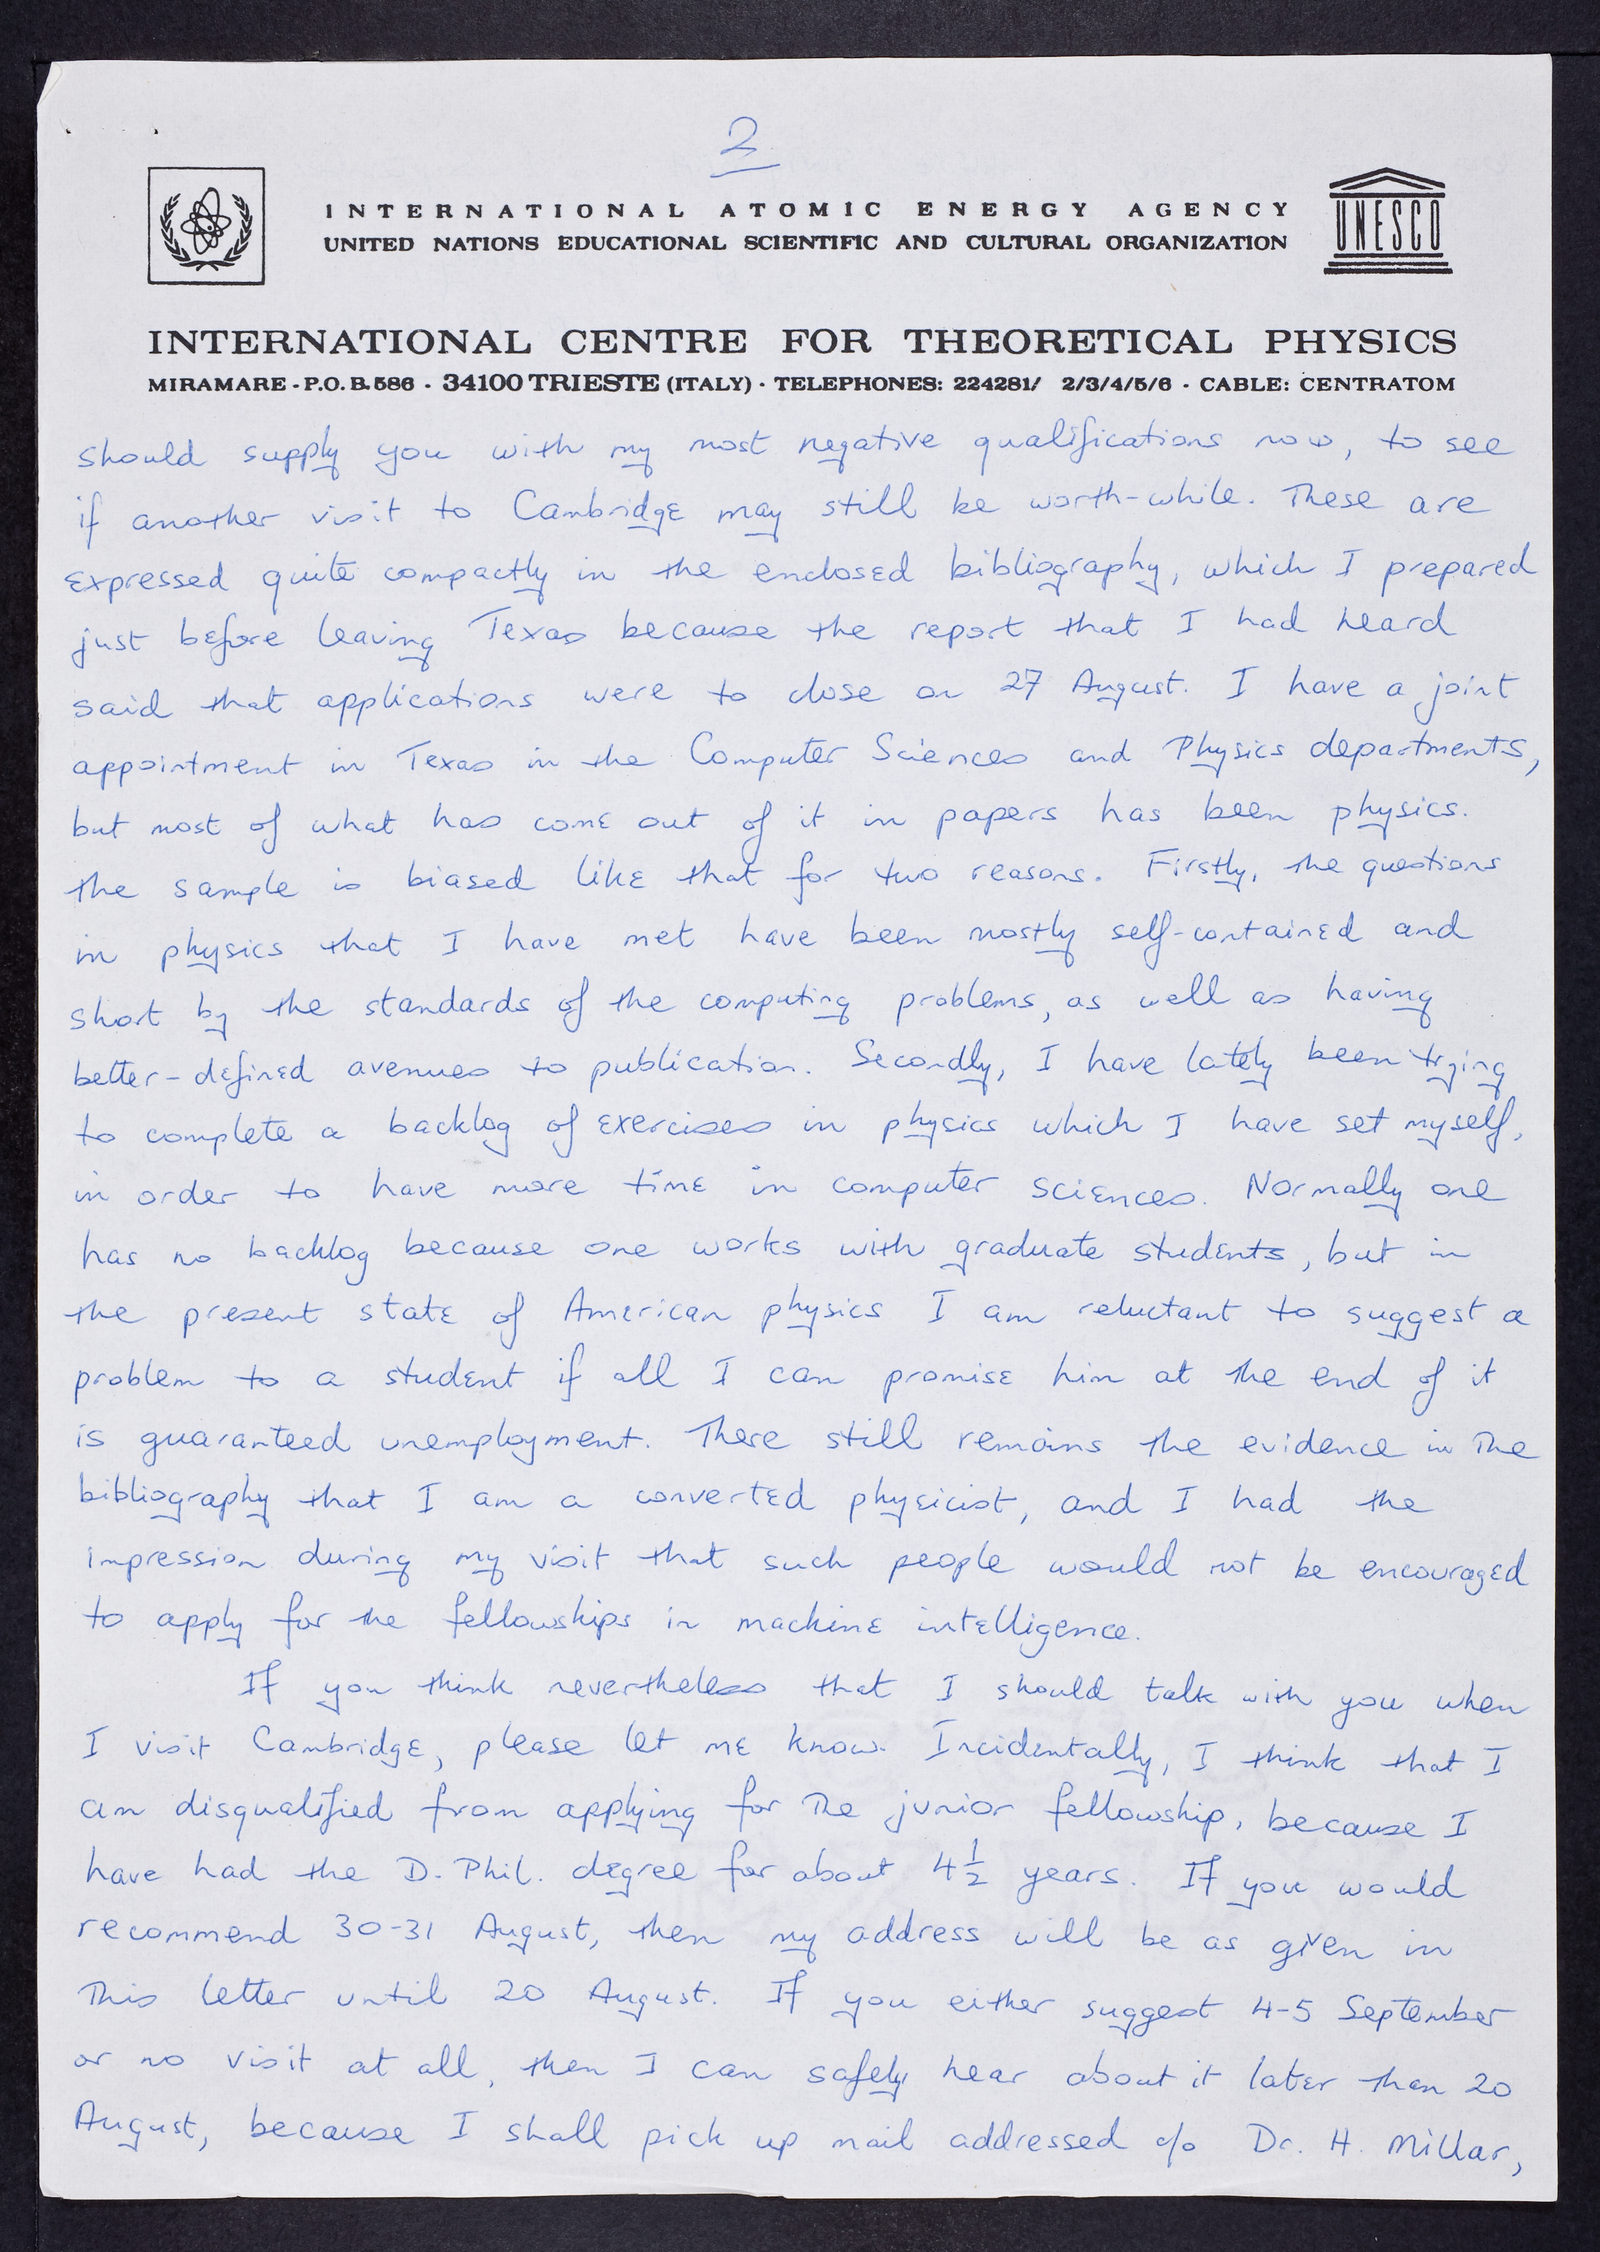 2
INTERNATIONAL ATOMIC ENERGY AGENCY
UNITED NATIONS EDUCATIONAL SCIENTIFIC AND CULTURAL ORGANIZATION
UNESCO
INTERNATIONAL CENTRE FOR THEORETICAL PHYSICS
MIRAMARE - P.O.B.586 - 34100 TRIESTE (ITALY) - TELEPHONES: 224281/ 2/3/4/5/6 - CABLE: CENTRATOM
should supply you with my most negative qualifications now, to see
if another visit to Cambridge may still be worth-while. These are
expressed quite compactly in the enclosed bibliography, which I prepared
just before leaving Texas because the report that I had heard
said that applications were to close on 27 August. I have a joint
appointment in Texas in the Computer Sciences and Physics departments,
but most of what has come out of it in papers has been physics.
The sample is biased like that for two reasons. Firstly, the questions
in physics that I have met have been mostly self-contained and
short by the standards of the computing problems, as well as having
better-defined avenues to publication. Secondly, I have lately been trying
to complete a backlog of exercises in physics which I have set myself,
in order to have more time in computer sciences. Normally one
has no backlog because one works with graduate students, but in
the present state of American physics I am reluctant to suggest a
problem to a student if all I can promise him at the end of it
is guaranteed unemployment. There still remains the evidence in the
bibliography that I am a converted physicist, and I had the
impression during my visit that such people would not be encouraged
to apply for the fellowships in machine intelligence.
If you think nevertheless that I should talk with you when
I visit Cambridge, please let me know. Incidentally, I think that I
am disqualified from applying for the junior fellowship, because I
have had the D. Phil. degree for about 4½ years. If you would
recommend 30-31 August, then my address will be as given in
this letter until 20 August. If you either suggest 4-5 September
or no visit at all, then I can safely hear about it later than 20
August, because I shall pick up mail addressed c/o Dr. H. Millar,